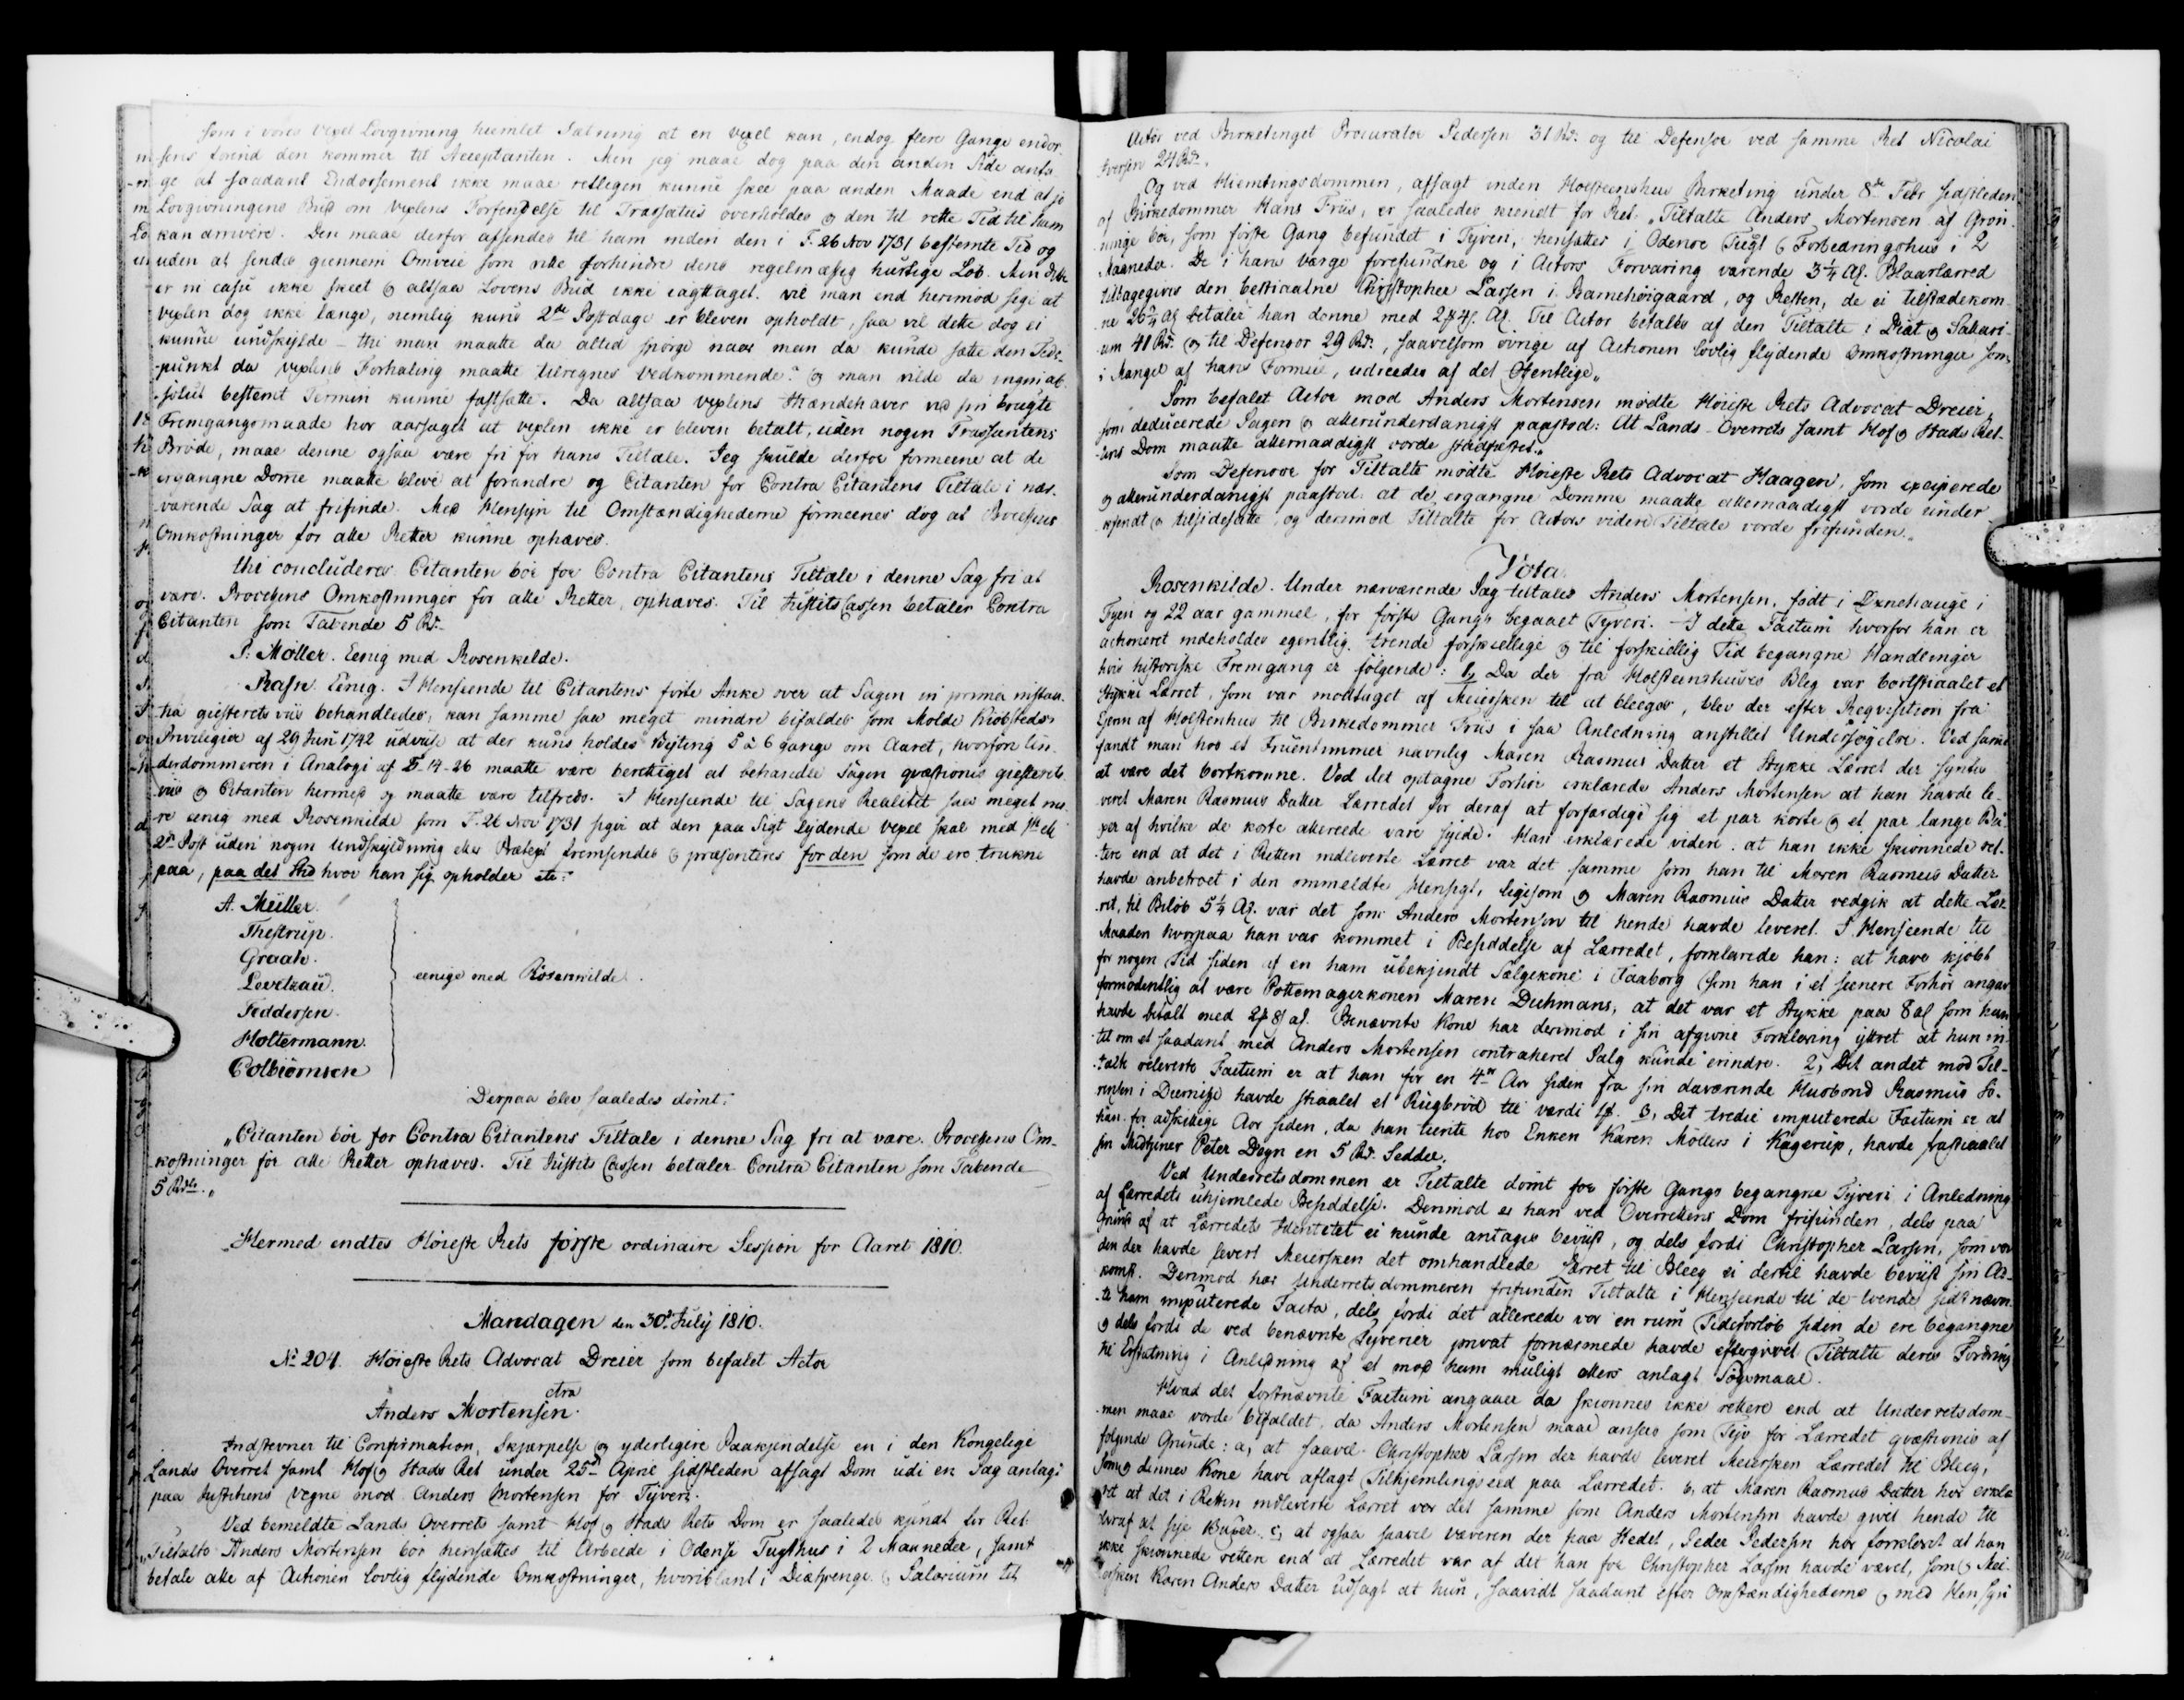 Som i vores Vexel Lovgivning hiemlet Sætning at en Vexel kan, endog flere Gange endos-
seres forend den kommer til Acceptanten. Men jeg maae dog paa den anden Side anta-
ge at saadant Endossement ikke maae retlegen kunne skee paa anden Maade end at jo
Lovgivningens Bud om Vexlens Forsendelse til Trassatus overholdes og den til rette Tid til ham
kan arrivere. Den maae derfor afsendes til ham inden den i F. 26 Nov 1731 bestemte Tid og
uden at sendes giennem Omveie som ikke forhindre dens regelmæsig hurtige Løb. Men dette
er in casu ikke skeet og altsaa Lovens Bud ikke iagttaget. vil man end herimod sige at
vexlen dog ikke længe, nemlig kuns 2de Postdage er bleven opholdt, saa vil dette dog ei
kunne undskylde – thi man maatte da altid spørge naar man da kunde sætte den Tids-
punkt da vexlens Forhaling maatte tilregnes Vedkommende? og man vilde da ingen ab-
solut bestemt Termin kunne fastsætte. Da altsaa vexlens Ihændehaver ved sin brugte
Fremgangsmaade har aarsaget at vexlen ikke er bleven betalt, uden nogen Trassantens
Brøde, maae denne ogsaa være fri for hans Tiltale. Jeg skulde derfor formeene at de
ergangne Domme maatte blive at forandre og Citanten for Contra Citantens Tiltale i nær-
værende Sag at frifinde. Med Hensyn til Omstændighederne formeenes dog at Processens
Omkostninger for alle Retter kunne ophæves.
thi concluderes Citanten bør for Contra Citantens Tiltale i denne Sag fri at
være. Processens Omkostninger for alle Retter, ophæves. Til Justits Cassen betaler Contra
Citanten som Tabende 5 Rd.
P. Møller. Eenig med Rosenkilde.
Rafn. Eenig. I Henseende til Citantens førte Anke over at Sagen in prima instan-
tia giesterets viis behandledes, kan samme saa meget mindre bifaldes som Molde Kiøbsteds
Privilegier af 29 Juni 1742 udviis at der kuns holdes Byting 5 à 6 gange om Aaret, hvorfore Un-
derdommeren i Analogi af 5-14-26 maatte være berettiget at behandle Sagen qvæstionis giesterets
viis og Citanten hermed og maatte være tilfreds. I Henseende til Sagens Realitet saa meget me-
re eenig med Rosenkilde som F. 26 Nov 1731 siger at den paa Sigt lydende Vexel skal med 1ste ell.
2den Post uden nogen Undskyldning eller Prætext fremsendes og præsenteres for den som de ere trukne
paa, paa det Sted hvor han sig opholder etc.
A. Müller.
Thestrup.
Graah.
Levetzau.
eenige med Rosenkilde.
Feddersen.
Holtermann.
Colbiørnsen
Derpaa blev saaledes dømt:
„Citanten bør for Contra Citantens Tiltale i denne Sag fri at være. Processens Om-
kostninger for alle Retter ophæves. Til Justits Cassen betaler Contra Citanten som Tabende
5 Rdlr.„
Hermed endtes Høieste Rets første ordinaire Session for Aaret 1810.
Mandagen den 30te July 1810.
No 204. Høieste Rets Advocat Dreier som befalet Actor
ctra
Anders Mortensen.
Indstevner til Confirmation, Skjærpelse og yderligere Paakjendelse en i den Kongelige
Lands Overret samt Hof og Stads Ret under 25de April sidstleden afsagt Dom udi en Sag anlagt
paa Justitiens Vegne mod Anders Mortensen for Tyveri.
Ved bemeldte Lands Overrets samt Hof og Stads Rets Dom er saaledes kjendt for Ret
„Tiltalte Anders Mortensen bør hensættes til Arbeide i Odense Tugthus i 2 Maaneder, samt
betale alle af Actionen lovlig flydende Omkostninger, hvoriblant i Diætpenge og Salarium til
Actor ved Birketinget Procurator Pedersen 31 Rd. og til Defensor ved samme Ret Nicolai
Iversen 24 Rd.
Og ved Hiemtingsdommen, afsagt inden Holsteenshus Birketing under 8de Febr sidstleden
af Birkedommer Hans Friis, er saaledes kiendt for Ret. „Tiltalte Anders Mortensen af Grøn-
ninge bør, som første Gang befundet i Tyveri, hensættes i Odense Tugt og Forbedringshus i 2
Maaneder. De i hans Værge forefundne og i Actors Forvaring værende 3¼ Al. Blaarlærred
tilbagegives den bestiaalne Christopher Larsen i Barnehøigaard, og Resten, de ei tilstædekom-
ne 26¾ Al betaler han denne med 2 4 Al. Til Actor betaltes af den Tiltalte i Diæt og Salari-
um 41 Rd. og til Defensor 29 Rd., saavelsom øvrige af Actionen lovlig flydende Omkostninger som
i Mangel af hans Formue, udreedes af det Offentlige„
Som befalet Actor mod Anders Mortensen mødte Høieste Rets Advocat Dreier,
som deducerede Sagen og allerunderdanigst paastod: At Lands-Overrets samt Hof og Stads Ret-
tens Dom maatte allernaadigst vorde stadfæstet.„
Som Defensor for Tiltalte mødte Høieste Rets Advocat Haagen, som exciperede
og allerunderdanigst paastod: at de ergangne Domme maatte allernaadigst vorde under
kjendt og tilsidesatte, og derimod Tiltalte for Actors videre Tiltale vorde frifunden.„
Vota.
Rosenkilde. Under nærværende Sag tiltales Anders Mortensen, født i Ernehauge i
Fyen og 22 aar gammel, for første Gangs begaaet Tyveri. I dette Factum hvorfor han er
actioneret indeholdes egentlig trende forskiellige og til forskiellig Tid begangne Handlinger
hvis historiske Fremgang er følgende: 1, Da der fra Holsteenshuses Bleg var bortstiaalet et
Stykke Lærret, som var modtaget af Meiersken til at bleeges, blev der efter Reqvisition fra
Eieren af Holstenhus til Birkedommer Friis i saa Anledning anstillet Undersøgelse. Ved samme
fandt man hos et Fruentimmer navnlig Maren Rasmus Datter et Stykke Lærret der syntes
at være det bortkomne. Ved det optagne Forhør erklærede Anders Mortensen at han havde le-
veret Maren Rasmus Datter Lærredet for deraf at forfærdige sig et par korte og et par lange Bu-
xer af hvilke de korte allereede vare syede. Han erklærede videre: at han ikke skiønnede ret-
tere end at det i Retten indleverte Lærret var det samme som han til Maren Rasmus Datter
havde anbetroet i den ommeldte Hensigt, ligesom og Maren Rasmus Datter vedgik at dette Lær-
ret, til Beløb 5¼ Al. var det som Anders Mortensen til hende havde leveret. I Henseende til
Maaden hvorpaa han var kommet i Besiddelse af Lærredet, forklarede han: at have kjøbt
for nogen Tid siden af en ham ubekjendt Sælgekone i Faaborg (som han i et seenere Forhør angav
formodentlig at være Pottemagerkonen Maren Duhmans, at det var et Stykke paa 8 al som han
havde betalt med 2 8 al. Benævnte Kone har derimod i sin afgivne Forklaring yttret at hun in-
tet om et saadant med Anders Mortensen contraheret Salg kunde erindre. 2, Det andet mod Til-
talte releverte Factum er at han for en 4re Aar siden fra sin daværende Husbond Rasmus So-
rensen i Diernisse havde stiaalet et Rugbrød til værdi 1. 3, Det tredie imputerede Factum er at
han for adskillige Aar siden, da han tiente hos Enken Karen Möllers i Kagerup, havde frastiaalet
sin Medtjener Peter Degn en 5 Rd. Seddel.
Ved Underretsdommen er Tiltalte dømt for første Gangs begangne Tyveri i Anledning
af Lærredets uhjemlede Besiddelse. Derimod er han ved Overrettens Dom frifunden, dels paa
Grund af at Lærredets Identetet ei kunde antages beviist, og dels fordi Christopher Larsen, som var
den der havde levert Meiersken det omhandlede Lærret til Bleeg ei dertil havde beviist sin Ad-
komst. Derimod har Underretsdommeren frifunden Tiltalte i Henseende til de tvende sidstnævn-
te ham imputerede Facta, dels fordi det allereede var en rum Tidsforløb siden de ere begangne
og dels fordi de ved benævnte Tyverier privat fornærmede havde eftergivet Tiltalte deres Fordring
til Erstatning i Anledning af et mod ham muligt ellers anlagt Søgsmaal.
Hvad det førstnævnte Factum angaaer da skiønnes ikke rettere end at Underretsdom-
men maae vorde bifaldet, da Anders Mortensen maae ansees som Tyv for Lærredet qvæstionis af
følgende Grunde: a, at saavel Christopher Larsen der havde leveret Meiersken Lærredet til Bleeg,
som og dennes Kone have aflagt Tilhjemlingseed paa Lærredet. b, at Maren Rasmus Datter har erklæ-
ret at det i Retten indleverte Lærret var det samme som Anders Mortensen havde givet hende til
deraf at sye Buxer. c, at ogsaa saavel væveren der paa Stedet, Peder Pedersen har forklaret at han
ikke skiønnede rettere end at Lærredet var af det han for Christopher Larsen havde vævet, som og Mei-
ersken Karen Anders Datter udsagt at hun, saavidt saadant efter Omstændighederne og med Hensyn